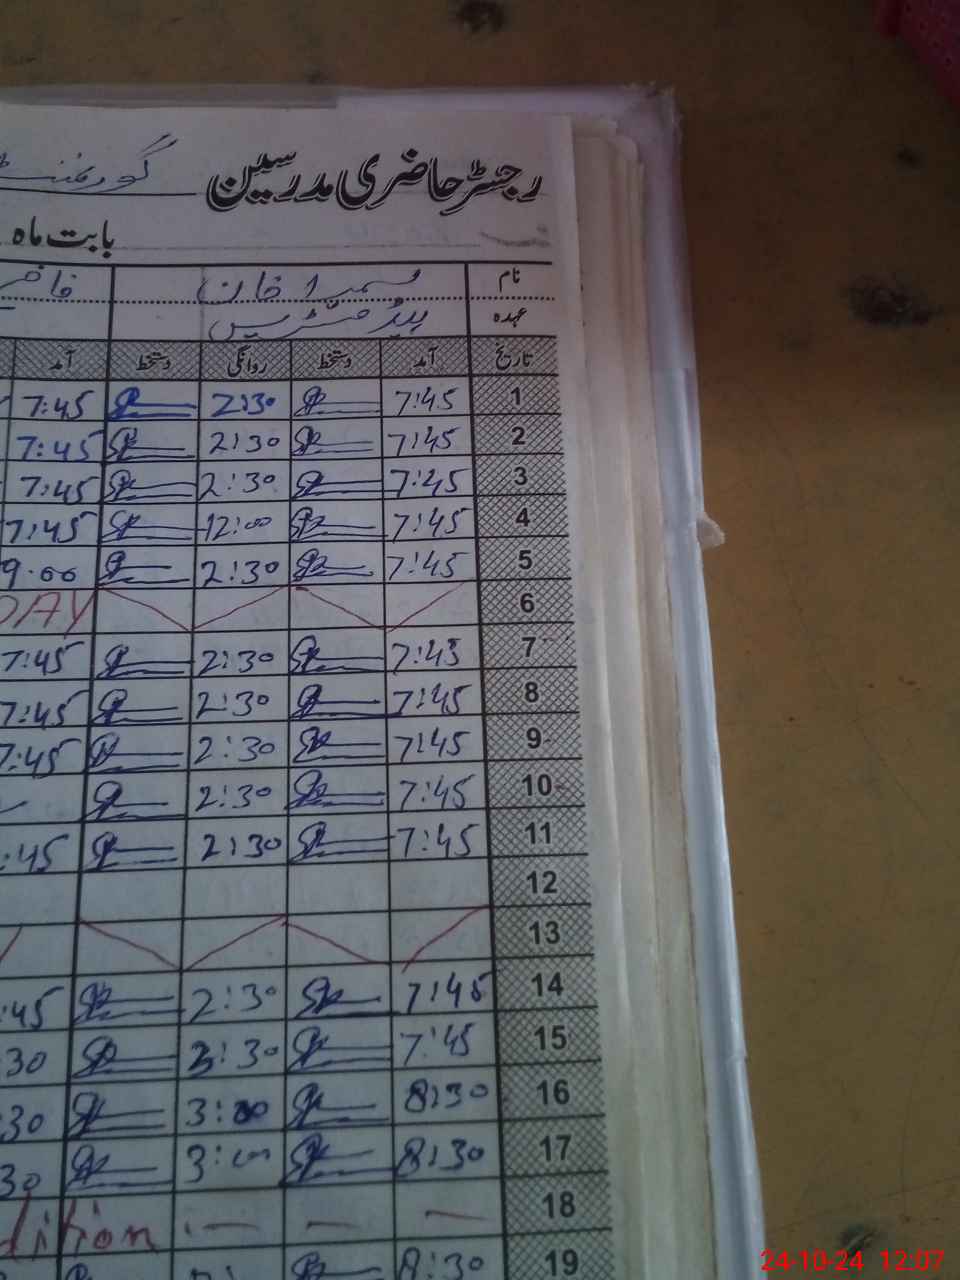 رجسٹر حاضری مدرسین گورنمنٹ
بابت ماہ
نام سمیرا خان
عہدہ ہیڈ مسٹریس
تاریخ آمد دستخط روانگی دستخط آمد
1 7:45 2:30 7:45
2 7:45 2:30 7:45
3 7:45 2:30 7:45
4 7:45 12:00 7:45
5 7:45 2:30 9:00
6 DAY
7 7:45 2:30 7:45
8 7:45 2:30 7:45
9 7:45 2:30 7:45
10 7:45 2:30
11 7:45 2:30 :45
12
13
14 7:45 2:30 :45
15 7:45 3:30 30
16 8:30 3:00 30
17 8:30 3:00 30
18 — — — dition
19 8:30
24-10-24 12:07